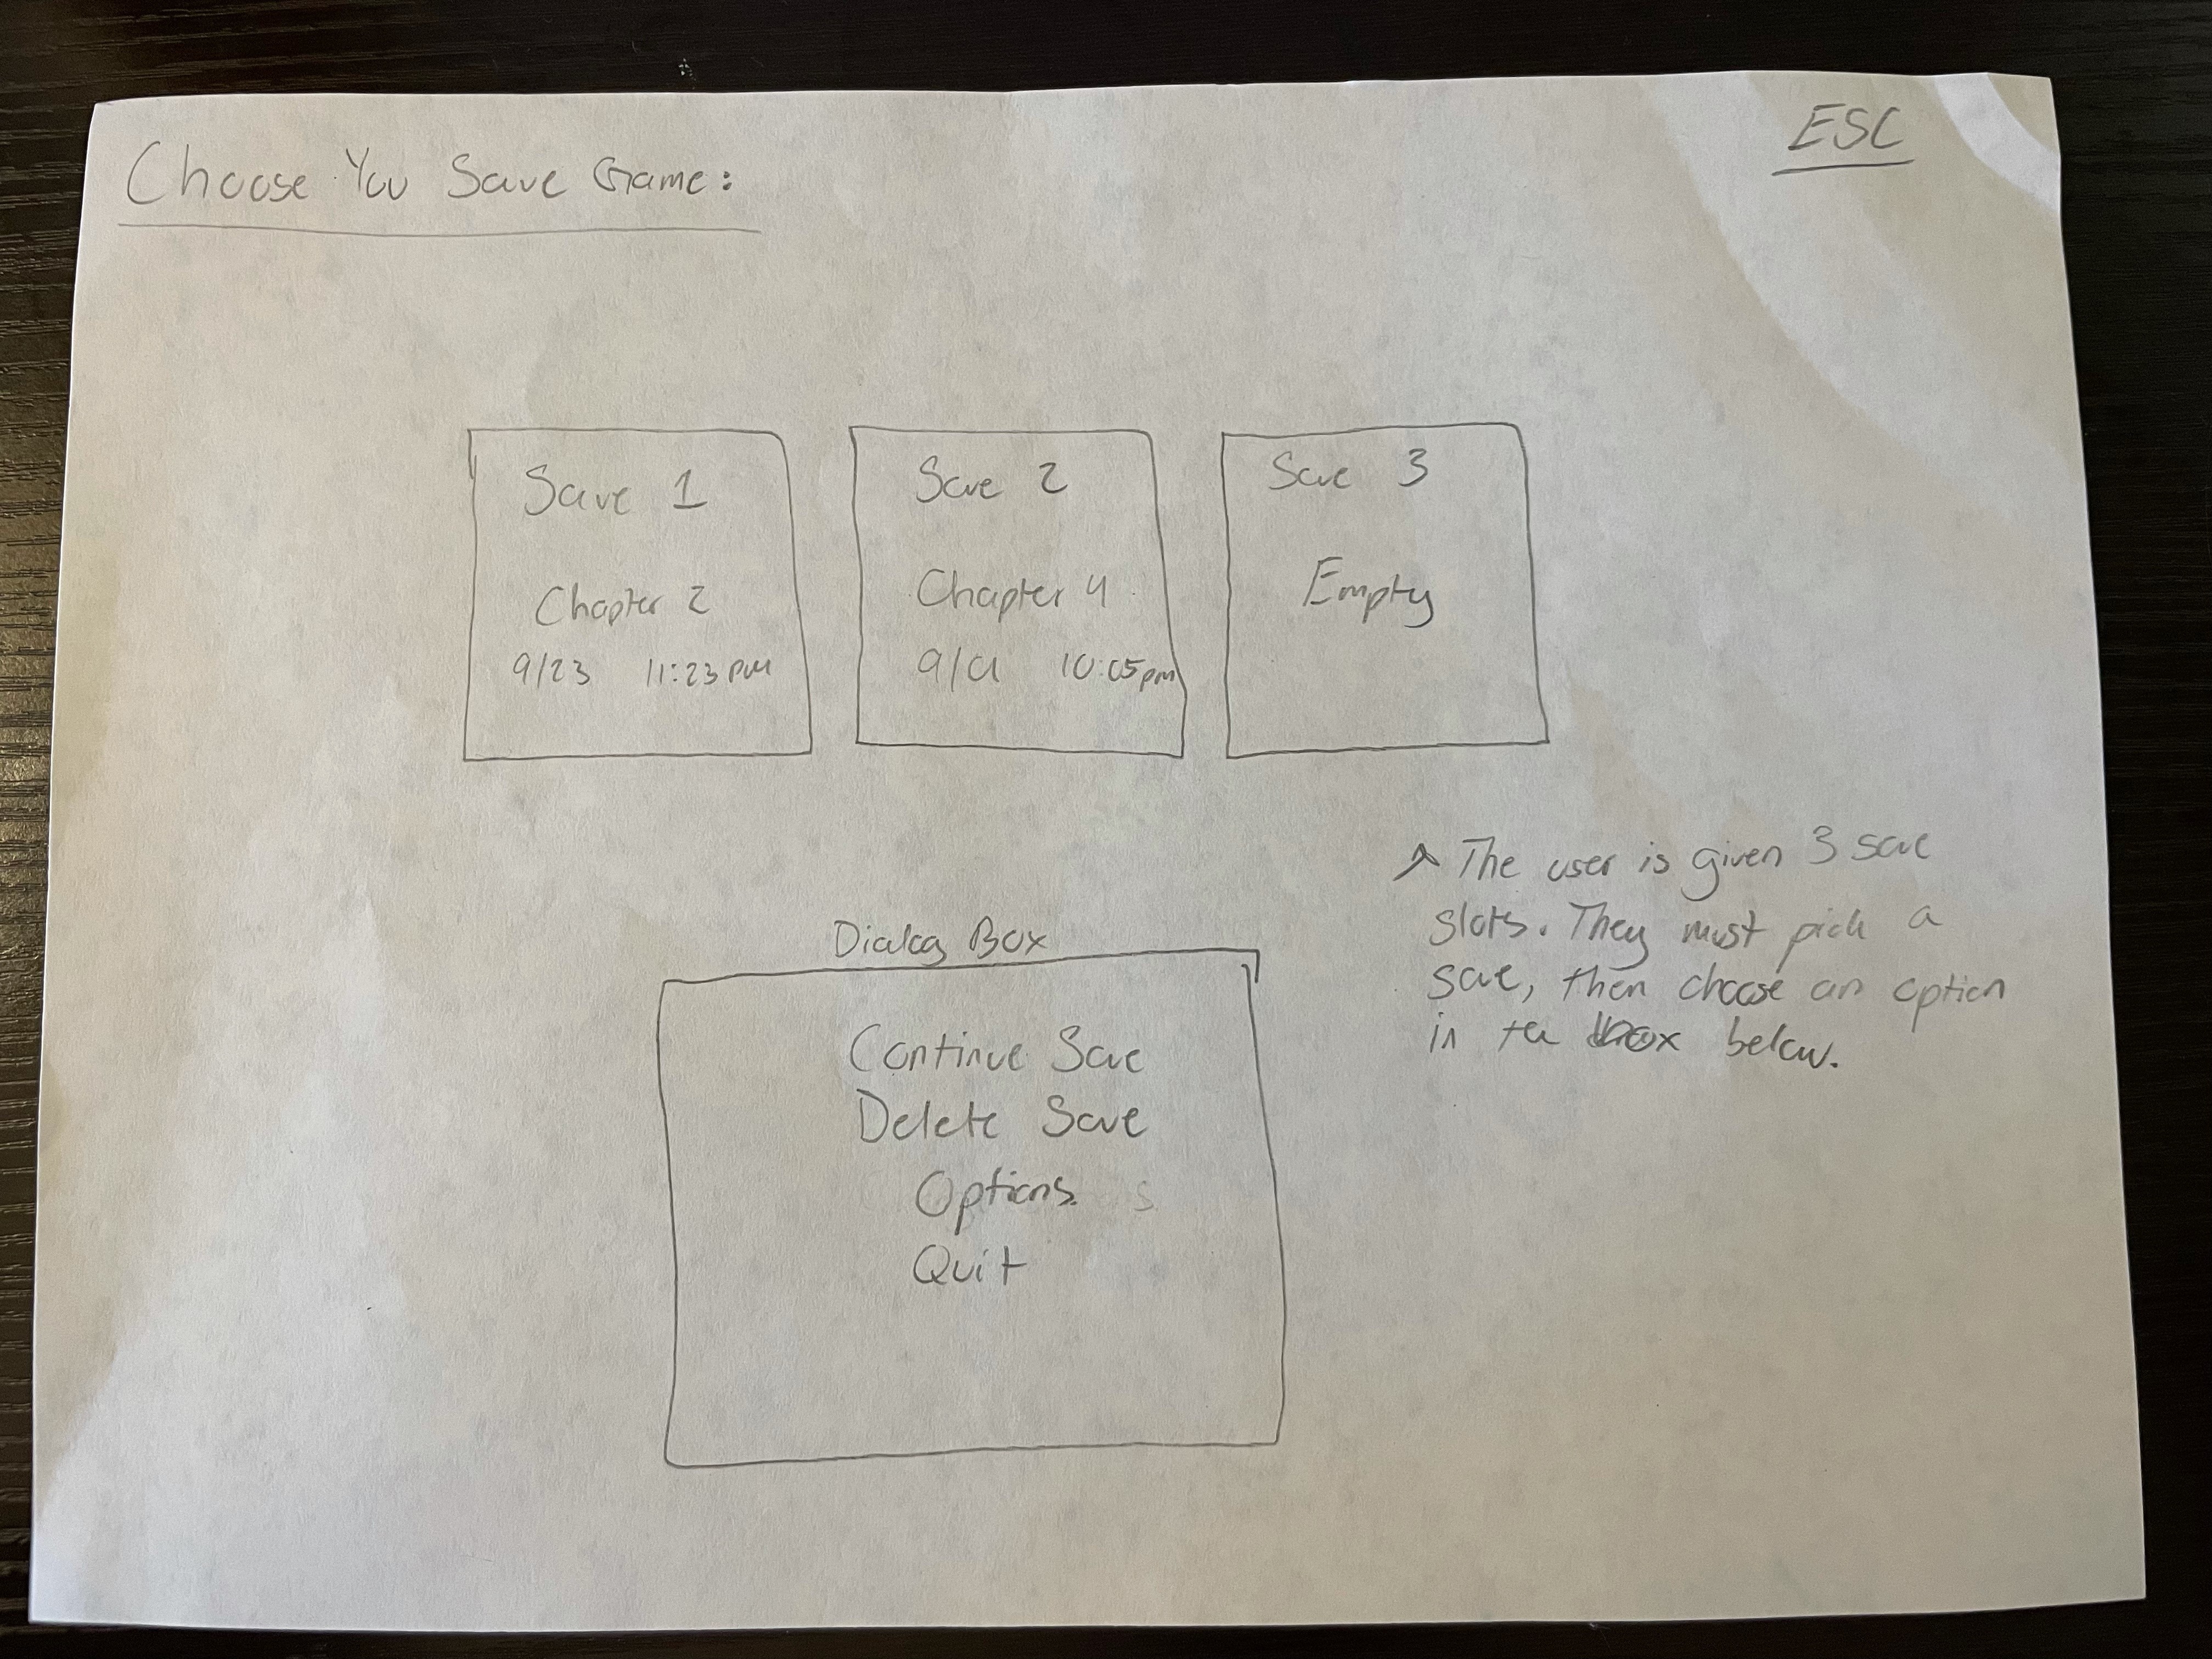 ESC
Choose You Save Game:
Save 1
Chapter 2
9/23 11:23 pm
Save 2
Chapter 4
9/01 10:05pm
Save 3
Empty
The user is given 3 save
slots. They must pick a
save, then choose an option
in the box below.
Dialog Box
Continue Save
Delete Save
Options
Quit